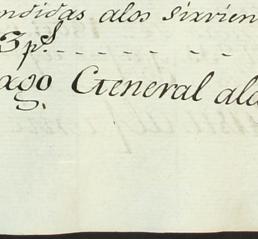 ndidas alos sixvien
3 ps
ago General ala